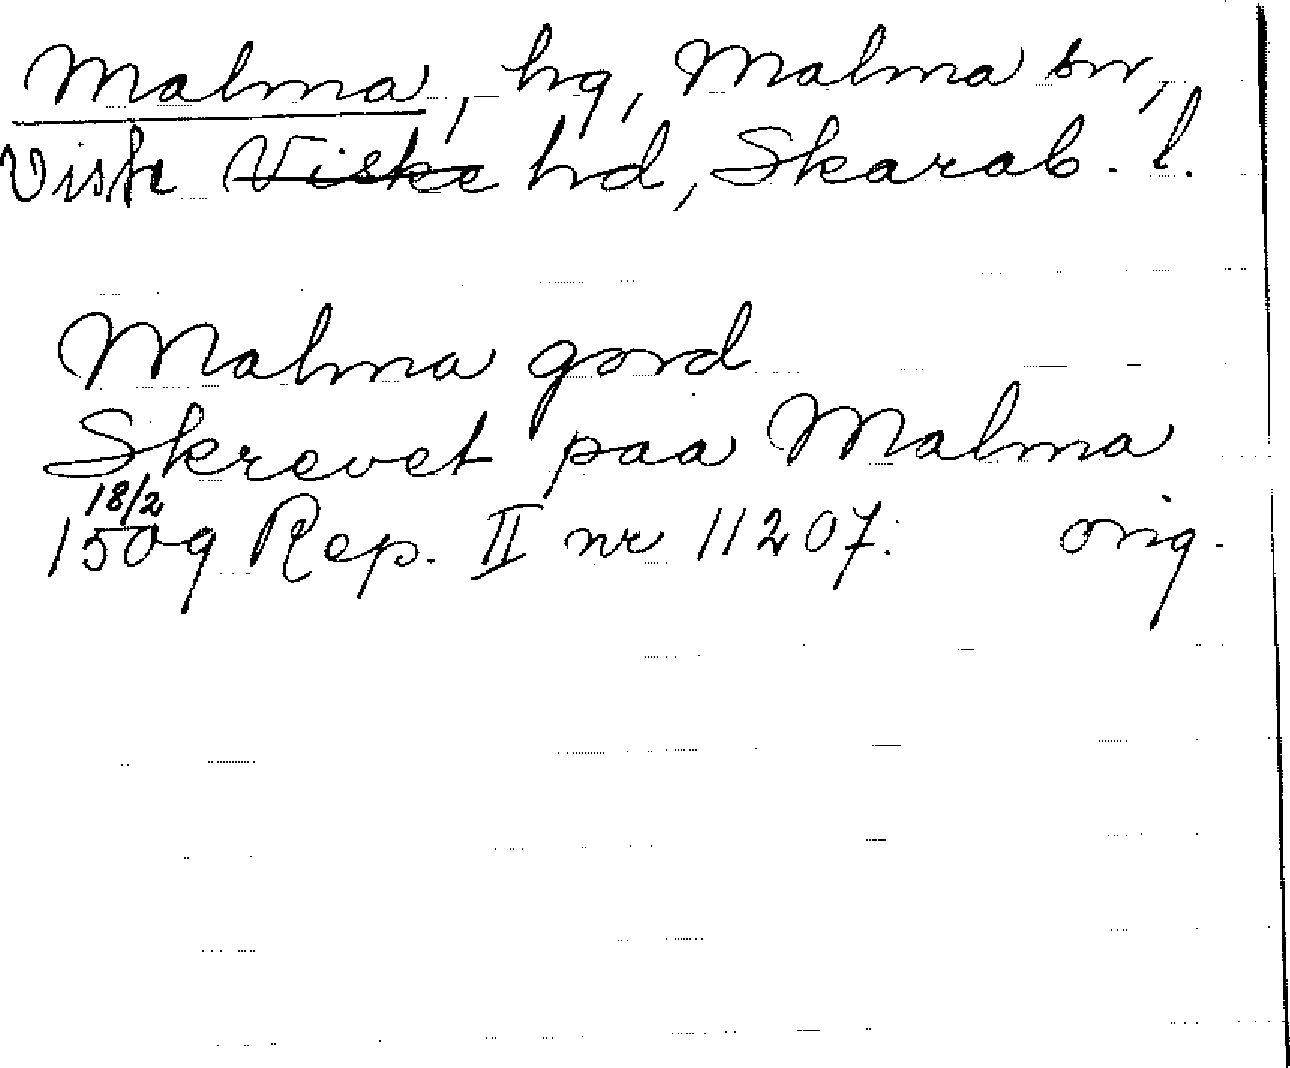 Malma, hg, Malma sn,
Viste Viske hd, Skarab. l.
Malma gord
Skrevet paa Malma
18/2
1509 Rep. II nr 11207. orig.